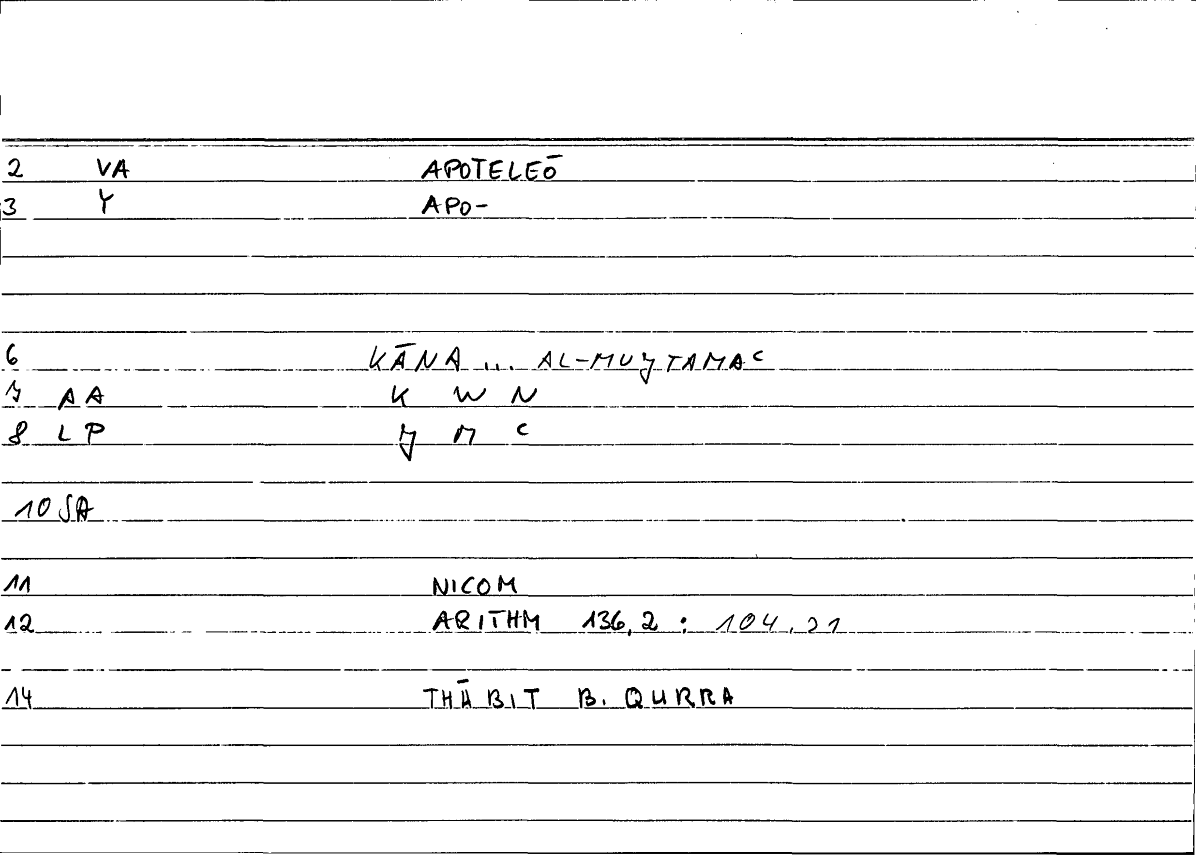 2 VA APOTELEŌ
3 Y APO-
6 KĀNA ... AL-MUɈTAMAᶜ
7 AA K W N
8 LP Ɉ M ᶜ
10 SA
11 NICOM
12 ARITHM 136,2 : 104,21
14 THĀBIT B. QURRA